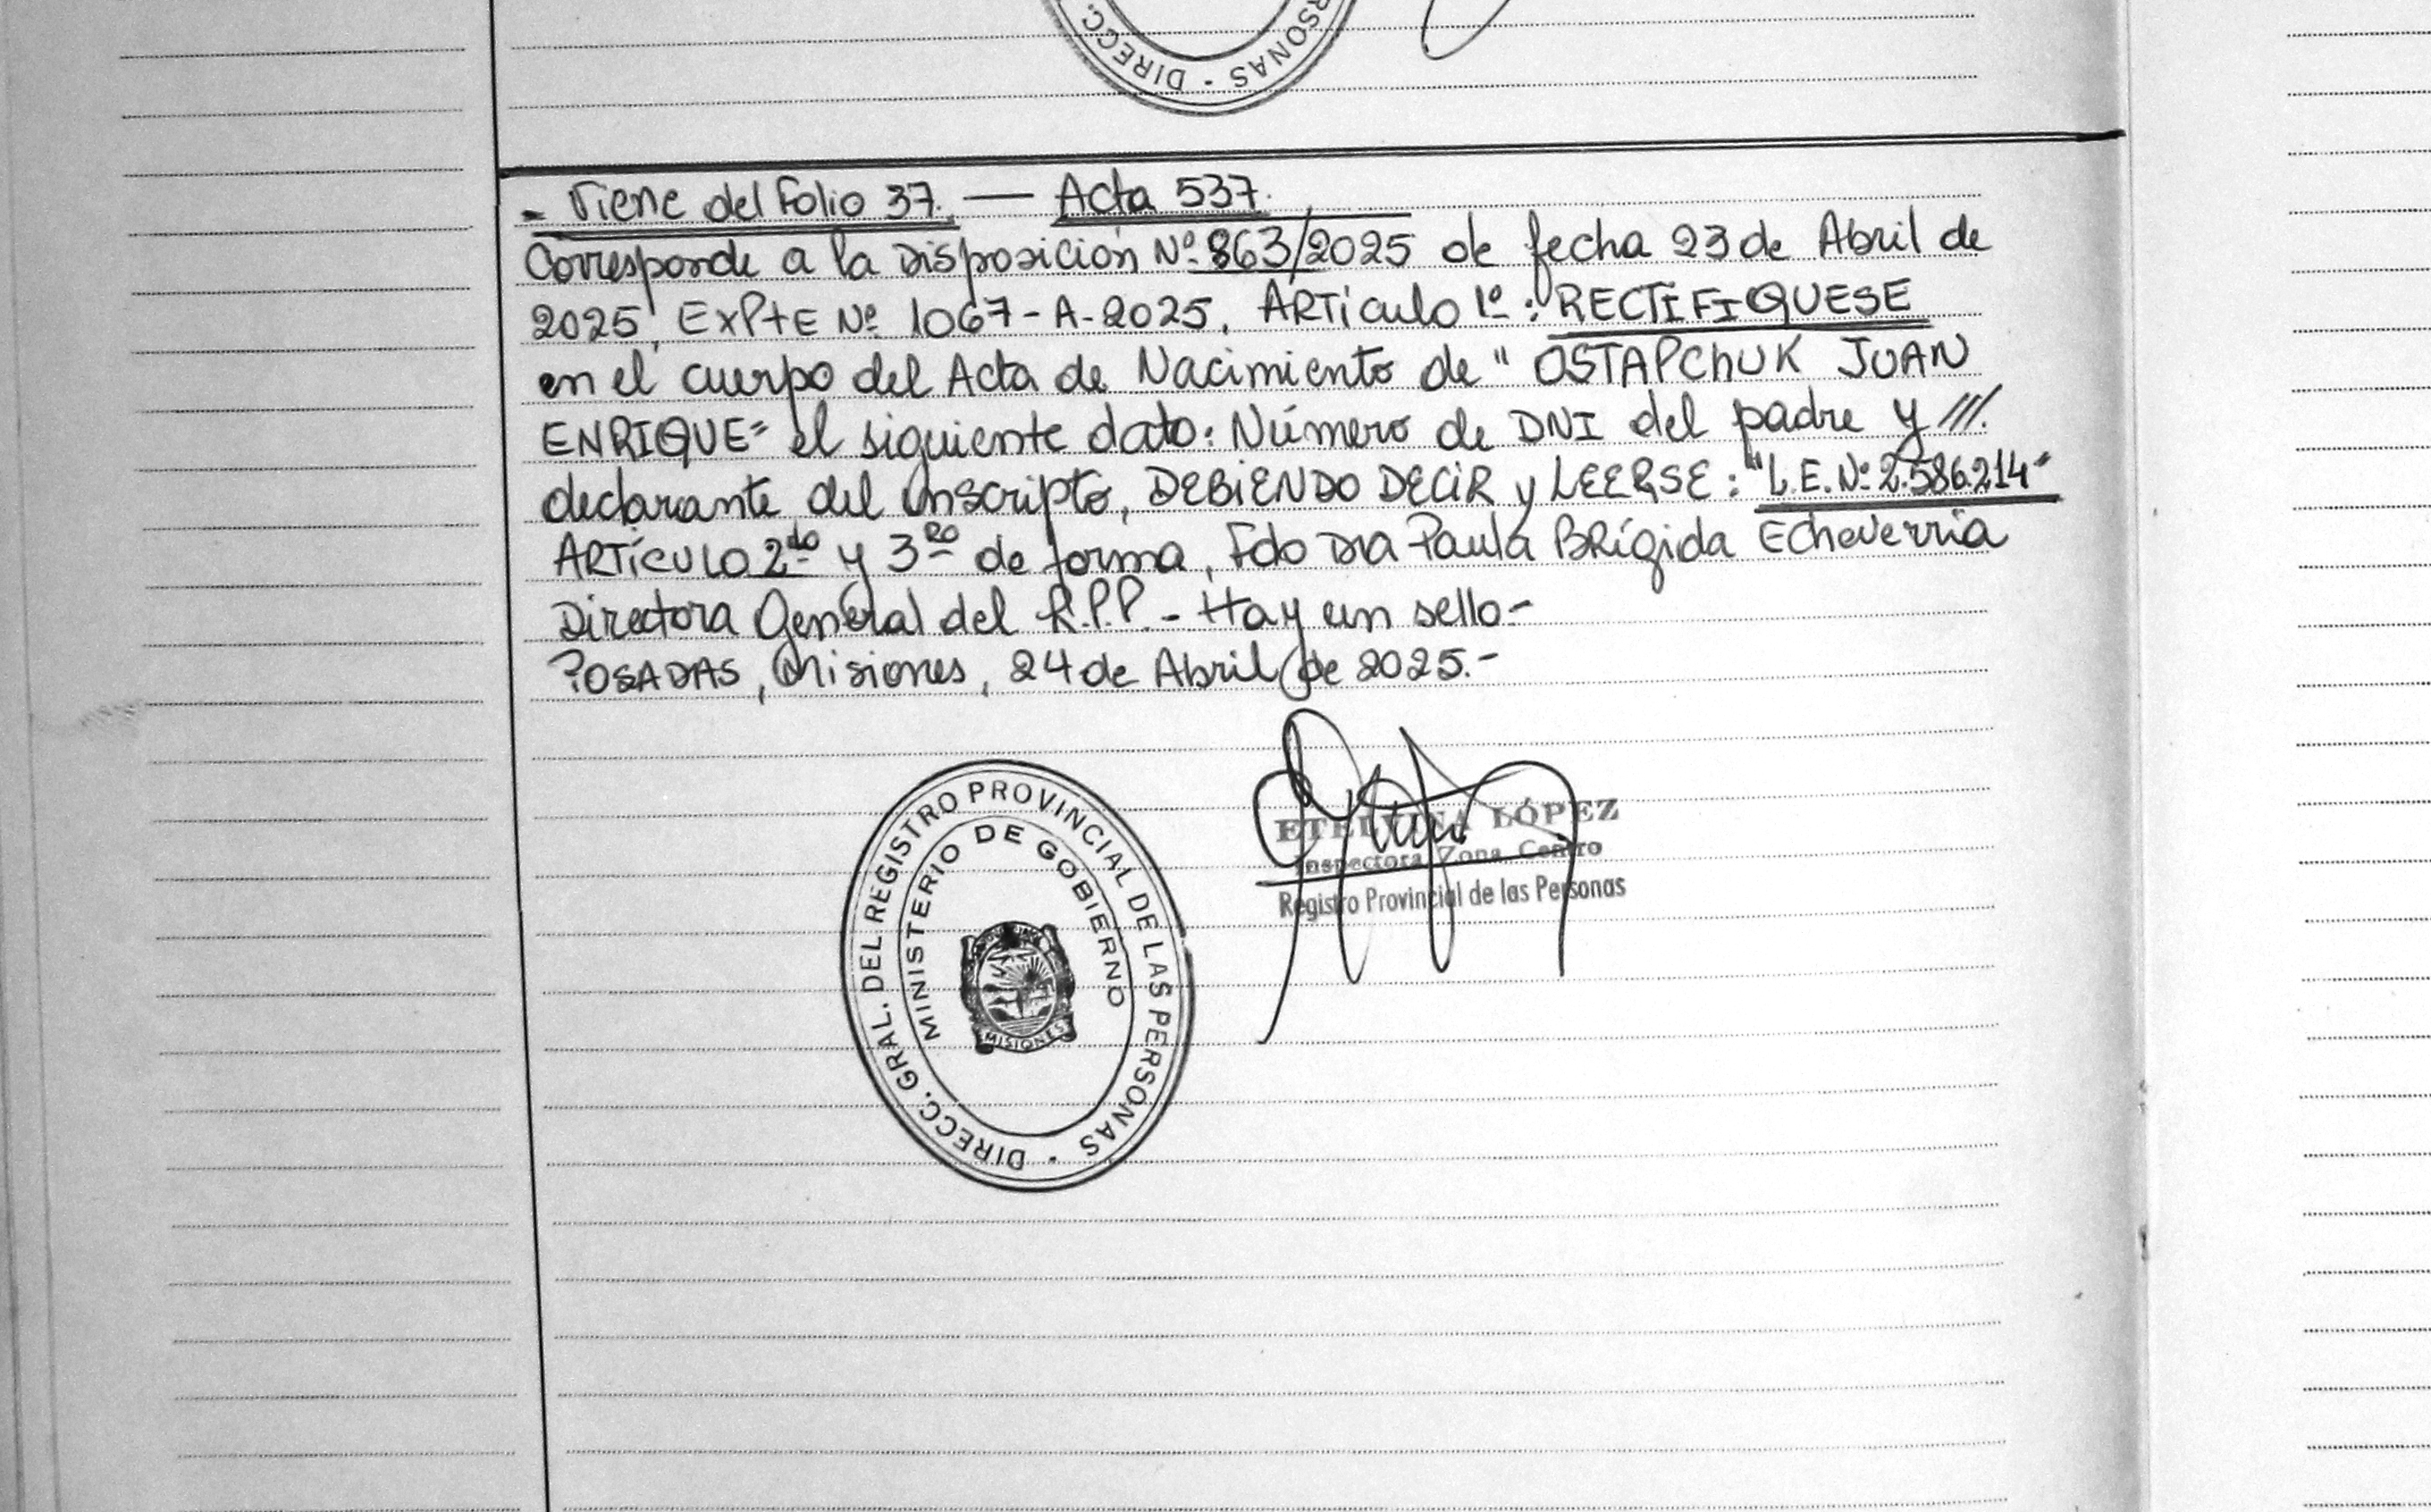 DIRECC.
RSONAS -
- Viene del Folio 37. — Acta 537.
Corresponde a la Disposición Nº 863/2025 de fecha 23 de Abril de
2025, ExPtE Nº 1067-A-2025, ARTículo 1º: RECTIFIQUESE
en el cuerpo del Acta de Nacimiento de " OSTAPChUK JUAN
ENRIQUE" el siguiente dato: Número de DNI del padre y ///.
declarante del inscripto, DEBiENDO DECiR y LEERSE: "L.E. Nº 2.586.214"
ARTÍCULO 2do y 3Ro de forma, Fdo DRA Paula BRígida Echeverria
Directora General del R.P.P. - Hay un sello-
POSADAS, Misiones, 24 de Abril de 2025.-
DIRECC. GRAL. DEL REGISTRO PROVINCIAL DE LAS PERSONAS -
MINISTERIO DE GOBIERNO
MISIONES
ETELVINA LÓPEZ
Inspectora Zona Centro
Registro Provincial de las Personas